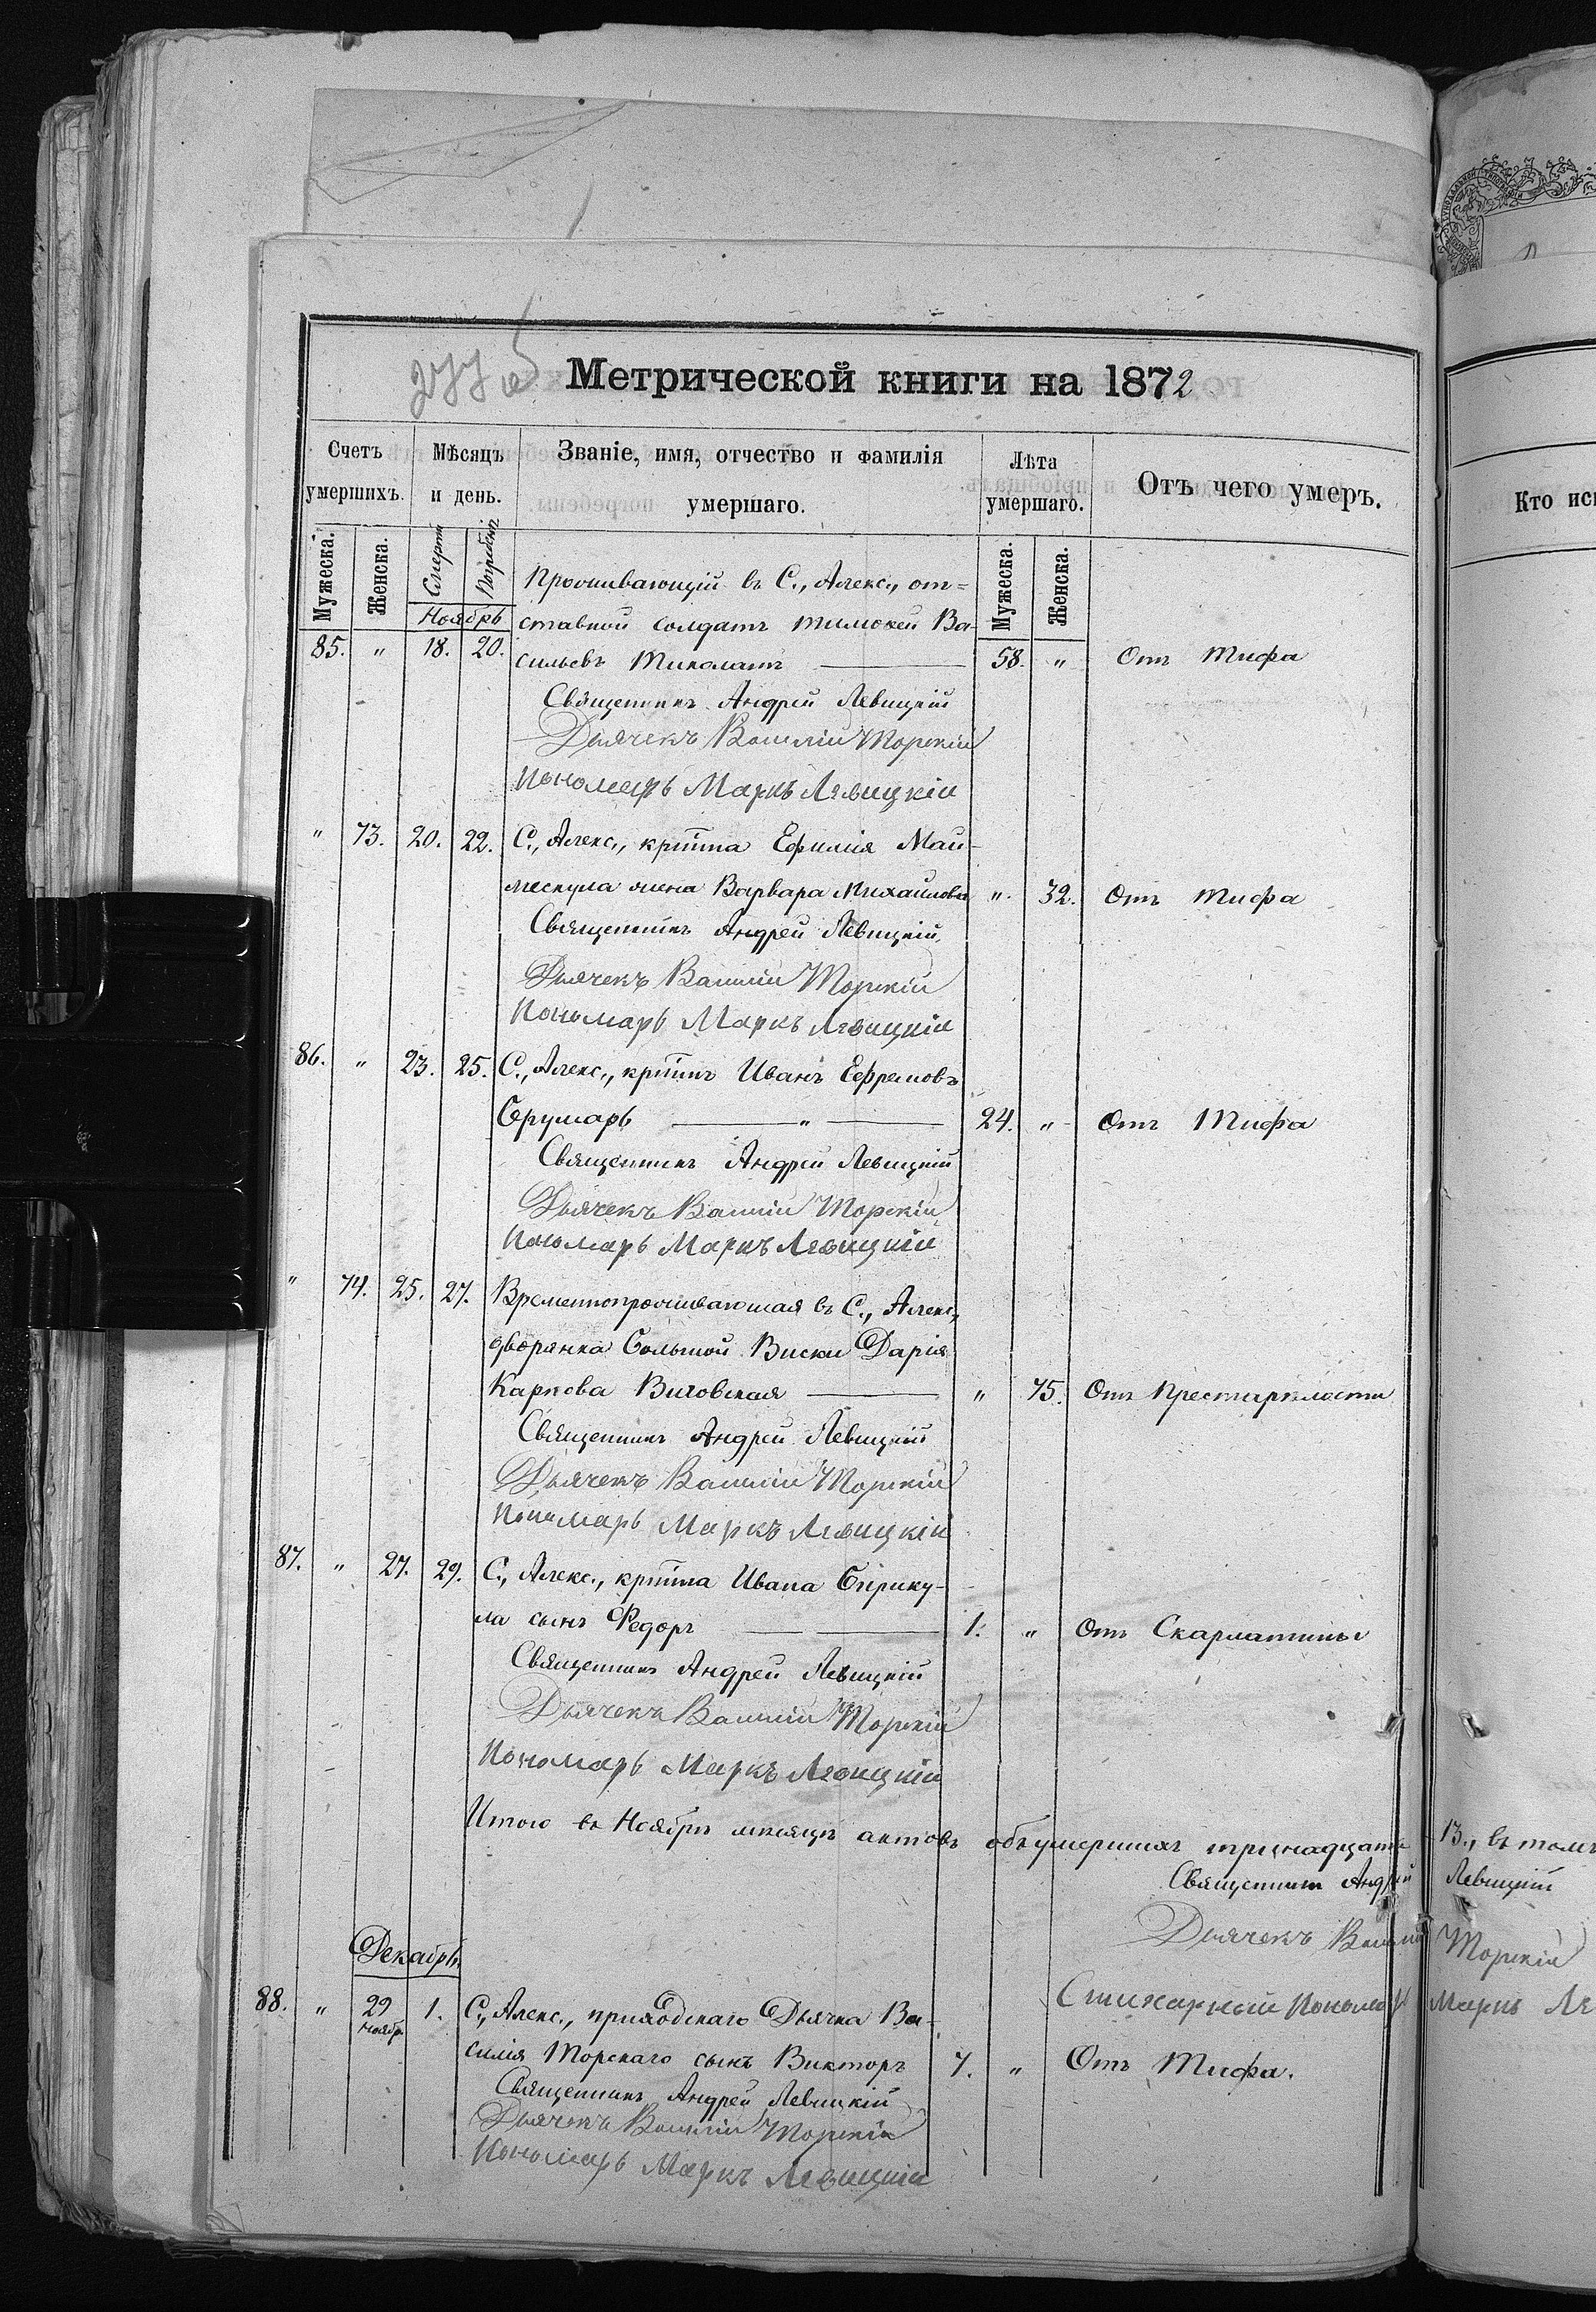 277 об
Метрической книги на 1872
Счетъ умершихъ.
Мѣсяцъ и день.
Званіе, имя, отчество и фамилія умершаго.
Лѣта умершаго.
Отъ чего умеръ.
Кто исп
Мужеска. Женска. Смерти Погребен. Мужеска. Женска.
Ноябрь
Проживающій въ С., Алекс., от=
ставной солдатъ Тимоѳей Ва-
85. " 18. 20. сильевъ 58. " Отъ Тифа
Священникъ Андрей Левицкій
Дьячекъ Василій Торскій
Пономарь Маркъ Левицкій
" 73. 20. 22. С., Алекс., крестьянина Май-
жена Варвара Михайлова " 32. Отъ тифа
Священникъ Андрей Левицкій
Дьячекъ Василій Торскій
Пономарь Маркъ Левицкій
86. " 23. 25. С., Алекс., Иванъ Ефремовъ
24. " Отъ Тифа
Священникъ Андрей Левицкій
Дьячекъ Василій Торскій
Пономарь Маркъ Левицкій
" 74. 25. 27. Временнопроживающая въ С., Алекс.,
дворянка Большой Виски Дарія
Карпова " 75. Отъ Престарѣлости
Священникъ Андрей Левицкій
Дьячекъ Василій Торскій
Пономарь Маркъ Левицкій
87. " 27. 29. С., Алекс., Ивана
ла сынъ Ѳедоръ 1. " Отъ Скарлатины
Священникъ Андрей Левицкій
Дьячекъ Василій Торскій
Пономарь Маркъ Левицкій
Итого въ Ноябрѣ мѣсяцѣ актовъ объ умершихъ тринадцать 13., въ томъ
Священникъ Андрей Левицкій
Дьячекъ Василій Торскій
Декабрь
Стихарный Пономарь Маркъ Ле
88. " 29 ноябр. 1. С., Алекс., приходскаго Дьячка Ва-
силія Торскаго сынъ Викторъ 7. " Отъ Тифа.
Священникъ Андрей Левицкій
Дьячекъ Василій Торскій
Пономарь Маркъ Левицкій